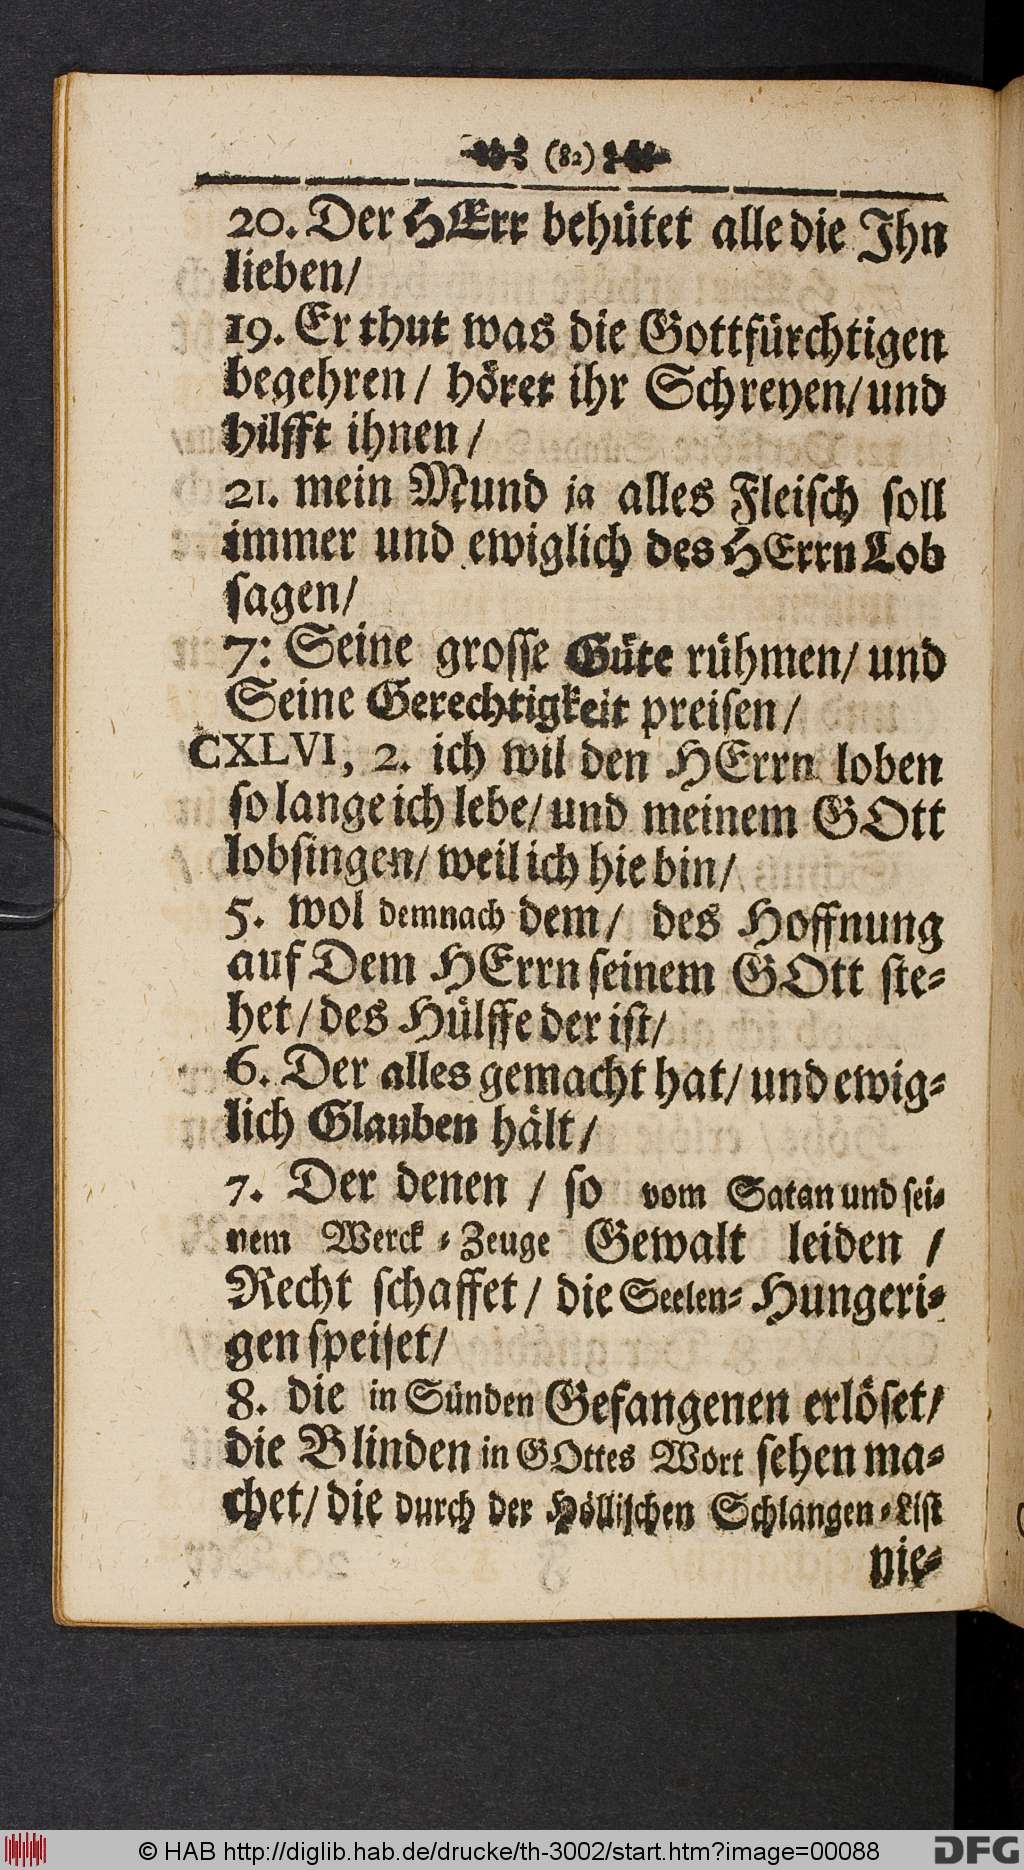 (82)
20. Der HErr behütet alle die Ihn
lieben/
19. Er thut was die Gottfürchtigen
begehren/ höret ihr Schreyen/ und
hilfft ihnen/
21. mein Mund ja alles Fleisch soll
immer und ewiglich des HErrn Lob
sagen/
7: Seine grosse Güte rühmen/ und
Seine Gerechtigkeit preisen/
CXLVI, 2. ich wil den HErrn loben
so lange ich lebe/ und meinem GOtt
lobsingen/ weil ich hie bin/
5. wol demnach dem/ des Hoffnung
auf Dem HErrn seinem GOtt ste-
het/ des Hülffe der ist/
6. Der alles gemacht hat/ und ewig-
lich Glauben hält/
7. Der denen / so vom Satan und sei-
nem Werck-Zeuge Gewalt leiden /
Recht schaffet/ die Seelen-Hungeri-
gen speiset/
8. die in Sünden Gefangenen erlöset/
die Blinden in GOttes Wort sehen ma-
chet/ die durch der Höllischen Schlangen-List
nie-
© HAB http://diglib.hab.de/drucke/th-3002/start.htm?image=00088
DFG